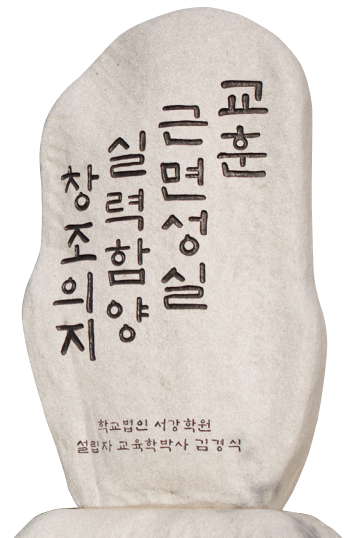 교훈
근면성실
실력함양
창조의지
학교법인 서강학원
설립자 교육학박사 김경식